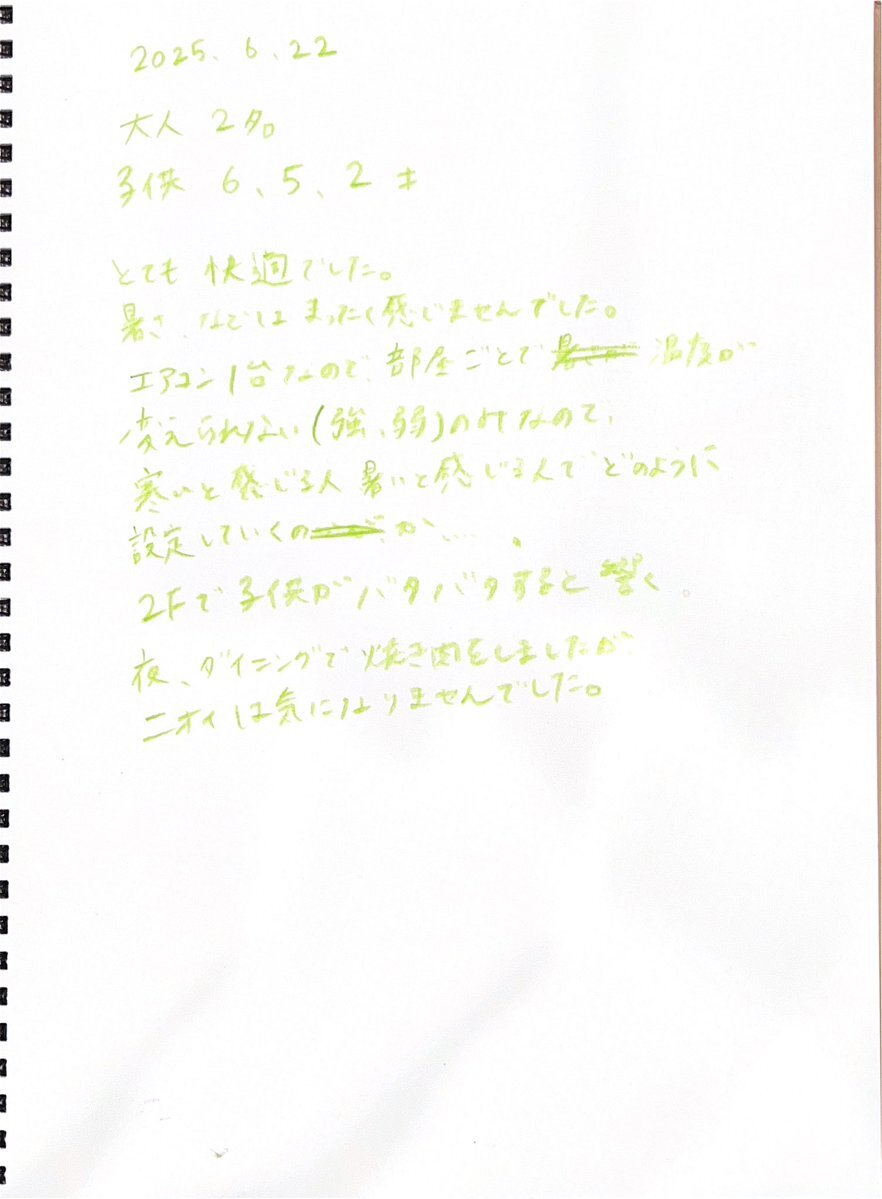 2025.6.22
大人 2名
子供 6、5、2才
とても 快適でした。
暑さ、などは まったく感じませんでした。
エアコン1台なので、部屋ごとで 温度が
変えられない(強、弱)のみなので、
寒いと感じる人 暑いと感じる人で どのように
設定していくのか…。
2Fで子供がバタバタすると 響く
夜、ダイニングで焼き肉をしましたが
ニオイは気になりませんでした。